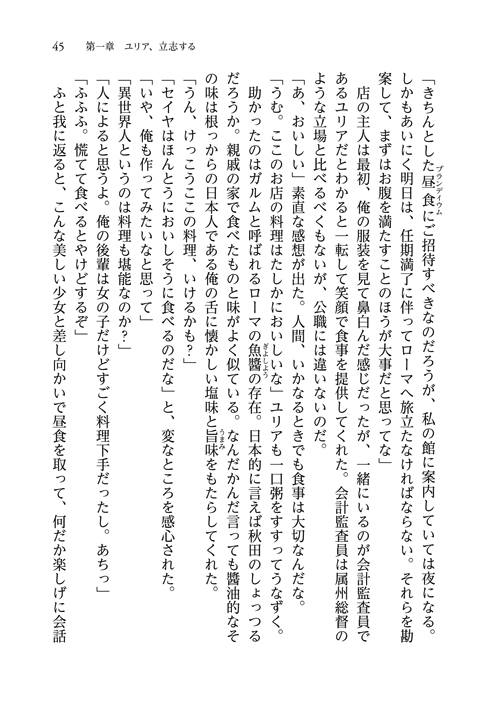 45　第一章　ユリア、立志する
「きちんとした昼食にご招待すべきなのだろうが、私の館に案内していては夜になる。
プランデイウム
しかもあいにく明日は、任期満了に伴ってローマへ旅立たなければならない。それらを勘
案して、まずはお腹を満たすことのほうが大事だと思ってな」
店の主人は最初、俺の服装を見て鼻白んだ感じだったが、一緒にいるのが会計監査員で
あるユリアだとわかると一転して笑顔で食事を提供してくれた。会計監査員は属州総督の
ような立場と比べるべくもないが、公職には違いないのだ。
「あ、おいしい」素直な感想が出た。人間、いかなるときでも食事は大切なんだな。
「うむ。ここのお店の料理はたしかにおいしいな」ユリアも一口粥をすすってうなずく。
助かったのはガルムと呼ばれるローマの魚醬の存在。日本的に言えば秋田のしょっつる
ぎょしょう
だろうか。親戚の家で食べたものと味がよく似ている。なんだかんだ言っても醬油的なそ
の味は根っからの日本人である俺の舌に懐かしい塩味と旨味をもたらしてくれた。
うまみ
「うん、けっこうここの料理、いけるかも？」
「セイヤはほんとうにおいしそうに食べるのだな」と、変なところを感心された。
「いや、俺も作ってみたいなと思って」
「異世界人というのは料理も堪能なのか？」
「人によると思うよ。俺の後輩は女の子だけどすごく料理下手だったし。あちっ」
「ふふふ。慌てて食べるとやけどするぞ」
ふと我に返ると、こんな美しい少女と差し向かいで昼食を取って、何だか楽しげに会話